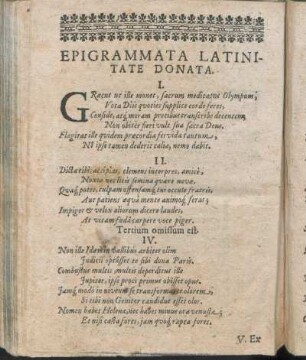 EPIGRAMMATA LATINI-
TATE DONATA.
I.
GRæcus ut ille monet, sacrum meditatus Olympum,
Vota Diis quoties supplice corde feres:
Consule, atq; moram precibus transcribe decentem,
Non aliter fieri vult sua sacra Deus.
Flagitat ille quidem præcordia fervida tantum,
NI ipse tamen dederis talio, nemo dabit.
II.
Dicta tibi, accipias, clemens interpres, amici,
Nunc noctivis simina quære novæ.
Quaq; potes, culpam offensamq; tui occule fratris,
Aut patiens æqua mente animoq; feras;
Impiger & velox aliorum dicere laudes.
At vitam sudâ carpere voce piger.
Tertium omissum est.
IV.
Non ille Idæis in vallibus arbiter olim
Judicii opressit te sibi dona Paris.
Combustus multis multis deperditus ille
Jupiter, ipse procis primus obisset opus.
Jamq; modò in niveum se transformasset olorem,
Si tibi non Genitor candidus esset olor.
Nunc habes Helena, nec habes minus ora venusta;
Et nisi casta fores, jam quoq; rapta fores.
V. Ex